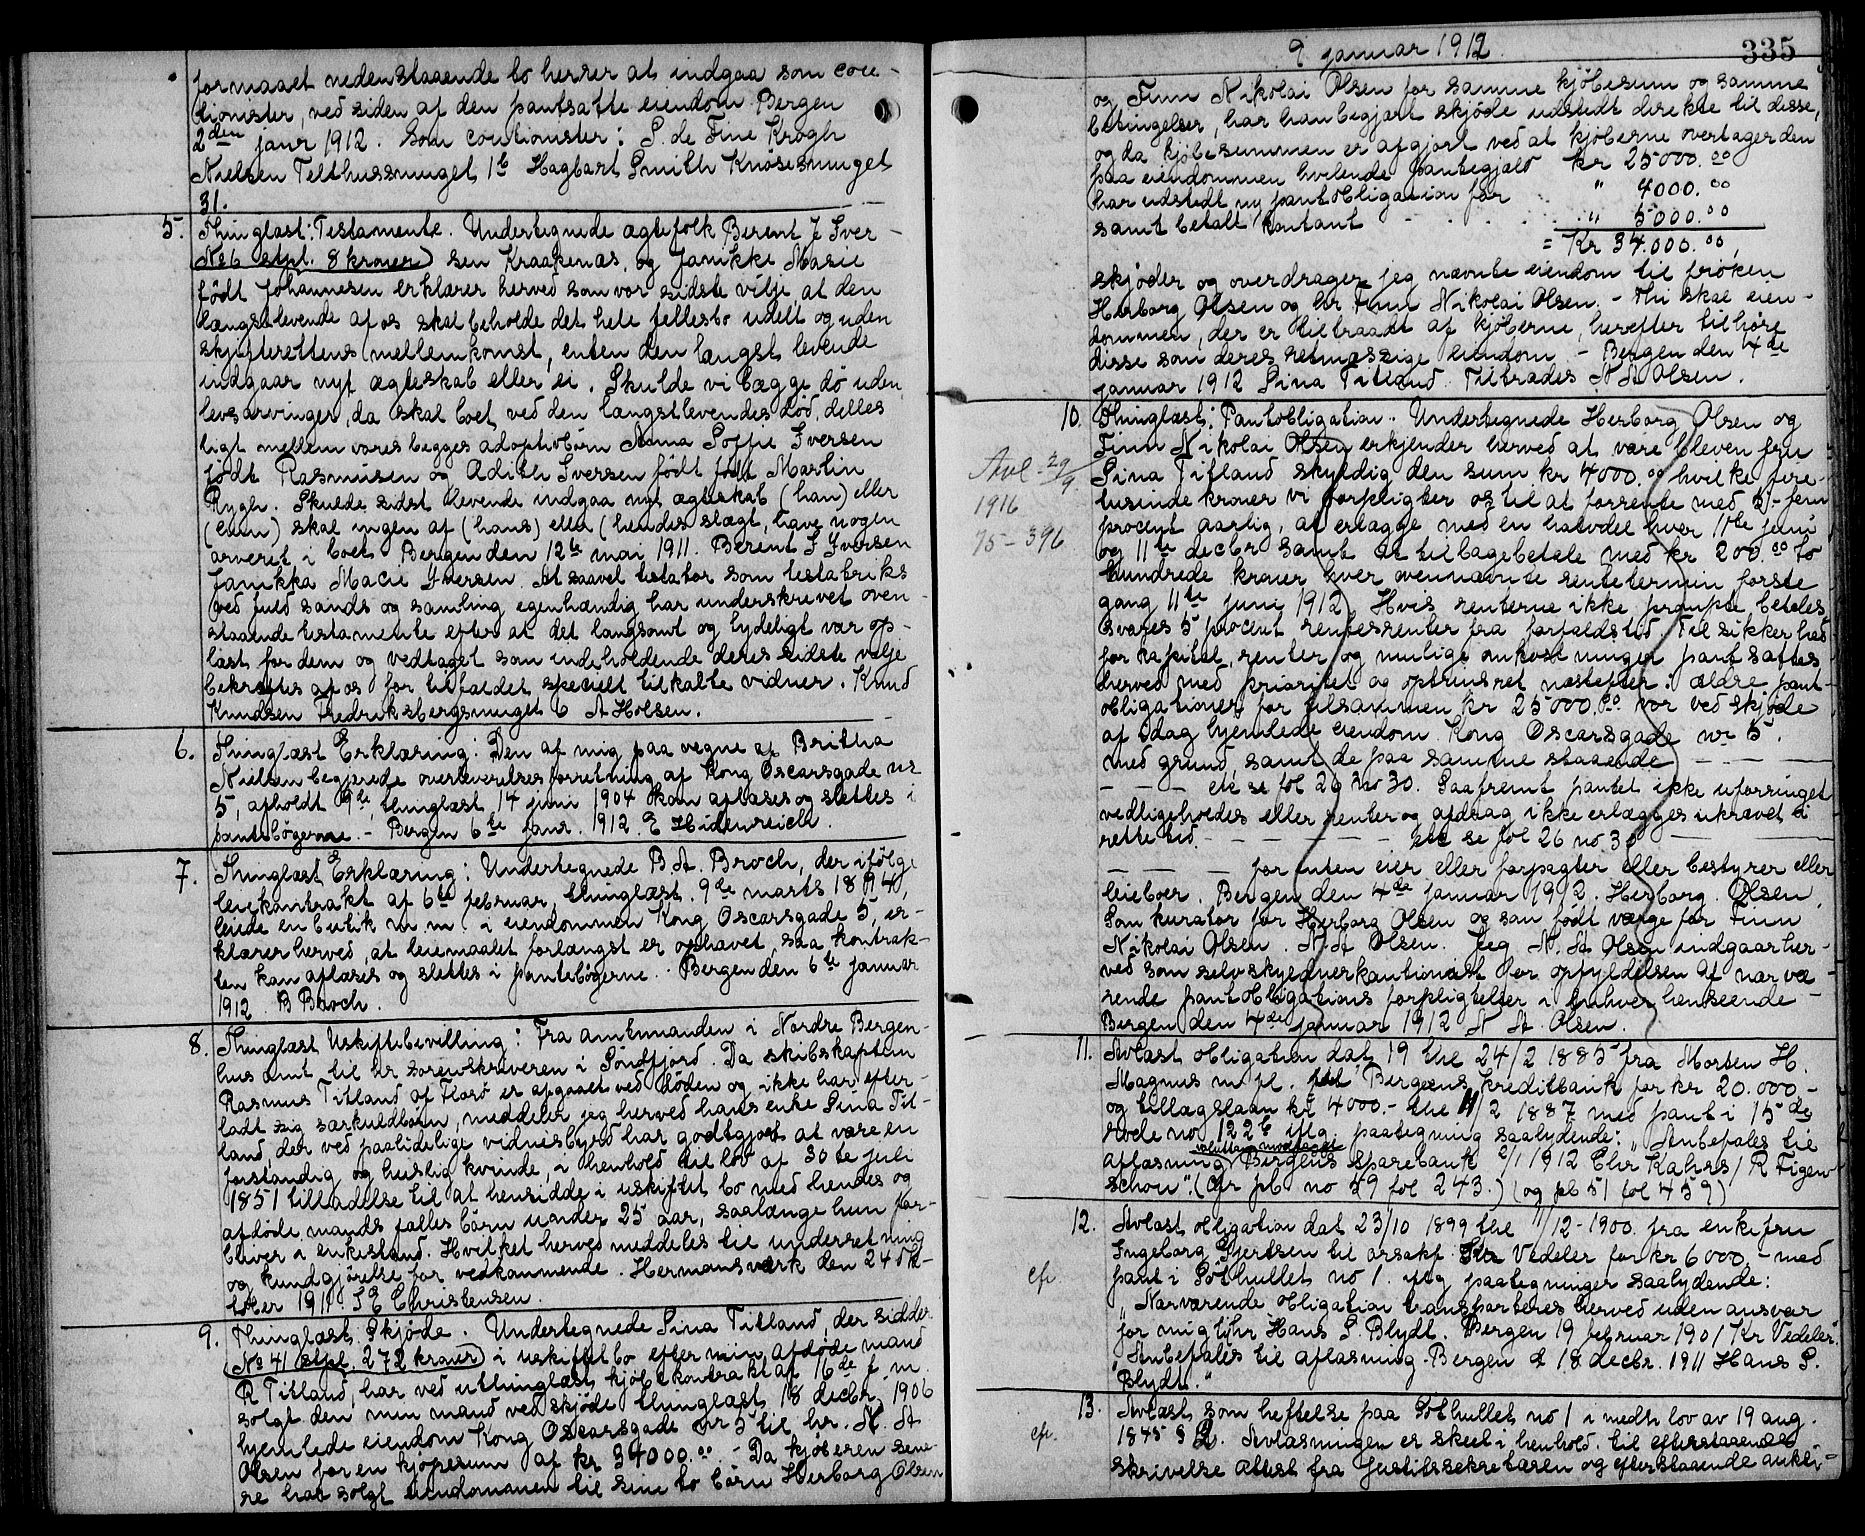 formaaet nedenstaaende to herrer at indgaa som cou-
tionister, ved siden af den pantsatte eiendom. Bergen
2den janr 1912. Som coutionister: S. de Fine Krogh
Nielsen Telthussmuget 1b Hagbart Smith Knøsesmuget
31.
5. Thinglæst: Testamente. Undertegnede ægtefolk Berent J Iver-
No 6 stpl. 8 kroner) sen Kraakenæs, og Janikke Marie
født Johannesen erklærer herved som vor sidste vilje, at den
længstlevende af os skal beholde det hele fellesbo udelt og uden
skifterettens mellemkomst, enten den længst levende
indgaar nyt ægteskab eller ei. Skulde vi begge dø uden
levsarvinger, da skal boet ved den længstlevendes død, delles
ligt mellem vores begges adoptivbørn Anna Soffie Iversen
født Rasmusen og Adith Iversen født Martin
Rygh. Skulde sidst levende indgaa nyt ægteskab (han) eller
(hun) skal ingen af (hans) eller (hendes slægt, have nogen
arveret i boet Bergen den 12te mai 1911. Berent J Iversen
Janikka Marie Iversen. At saavel testator som testatriks
ved fuld sands og samling egenhændig har underskrevet oven-
staaende testamente efter at det langsomt og tydeligt var op-
læst for dem og vedtaget som indeholdende deres sidste vilje
bekræftes af os for tilfældet specielt tilkalte vidner. Knud
Knudsen Fredriksbergsmuget 6 A Holsen.
6. Thinglæst Erklæring: Den af mig paa vegne af Britha
Nielsen begjærede overleverelsesforretning af Kong Oscarsgade nr
5, afholdt 9de, thinglæst 14 juni 1904 kan aflæses og slettes i
pantebøgerne. - Bergen 6te janr. 1912. E Hidenreich.
7. Thinglæst Erklæring: Undertegnede B A. Broch, der ifølge
leiekontrakt af 6te februar, thinglæst. 9de marts 1894,
leiede en butik m m i eiendommen Kong Oscarsgade 5, er-
klærer herved, at leiemaalet forlængst er ophævet, saa kontrak-
ten kan aflæses og slettes i pantebøgerne. Bergen den 6te januar
1912 B Broch.
8. Thinglæst Uskiftebevilling: Fra amtmanden i Nordre Bergen-
hus amt til hr sorenskriveren i Søndfjord. Da skibskaptein
Rasmus Titland af Florø er afgaaet ved døden og ikke har efter-
ladt sig særkuldbørn, meddeler jeg herved hans enke Sina Tit-
land, der ved paalidelige vidnesbyrd har godtgjort at være en
forstandig og huslig kvinde, i henhold til lov af 30te juli
1851 tilladelse til at hensidde i uskiftet bo med hendes og
afdøde mands fælles børn under 25 aar, saalænge hun for-
bliver i enkestand. Hvilket herved meddeles til underretning
og kundgjørelse for vedkommende. Hermansværk den 24 okt-
tober 1911. J E Christensen.
9. Thinglæst. Skjøde. Undertegnede Sina Titland, der sidder
(No 41 stpl. 272 kroner) i uskiftet bo efter min afdøde mand
R Titland, har ved uthinglæst kjøbekontrakt af 16de f m
solgt den min mand ved skjøde thinglæst 18 decbr. 1906
hjemlede eiendom Kong Oscarsgade nr 5 til hr. N. A.
Olsen for en kjøpesum af kr 34000.00 - Da kjøberen sene-
re har solgt eiendommen til sine to børn Herborg Olsen
9 januar 1912.
335
og Finn Nikolai Olsen for samme kjøbesum og samme
betingelser, har han begjært skjøde udstedt direkte til disse,
og da kjøbesummen er afgjort ved at kjøberne overtager den
paa eiendommen hvilende pantegjæld kr 25000.00
har udstedt ny pantobligation for " 4000.00
samt betalt kontant . . . . . " 5000.00
= Kr 34.000.00,
skjøder og overdrager jeg nævnte eiendom til frøken
Herborg Olsen og hr Finn Nikolai Olsen. - Thi skal eien-
dommen, der er tiltraadt af kjøberne, herefter tilhøre
disse som deres retmæssige eiendom - Bergen den 4de
januar 1912 Sina Titland. Tiltrædes N A Olsen.
10. Thinglæst: Pantobligation. Undertegnede Herborg Olsen og
Finn Nikolai Olsen erkjender herved at være bleven fru
Avl 29/9
1916
75-396
Sina Titland skyldig den sum kr 4000.00 hvilke fire-
tusinde kroner vi forpligter os til at forrente med 5 - fem
procent aarlig, at erlægge med en halvdel hver 11te juni
og 11te decbr samt at tilbagebetale med kr 200.00 to
hundrede kroner hver ovennævnte rentetermin første
gang 11te juni 1912. Hvis renterne ikke prompte betales
svares 5 procent rentesrenter fra forfaldstid. Til sikkerhed
for kapital, renter og mulige omkostninger pantsættes
herved med prioritet og optrinsret næstefter: ældre pant-
obligationer for tilsammen kr 25000.00 vor ved skjøde
af idag hjemlede eiendom Kong Oscarsgade nr 5.
med grund, samt de paa samme staaende - - -
- - - etc se fol 26 no 30. Saafremt pantet ikke uforringet
vedligeholdes eller renter og afdrag ikke erlægges ukrævet i
rette tid. - - - - etc se fol 26 no 30 - - -
- - - for enten eier eller forpagter eller bestyrer eller
leieboer. Bergen den 4de januar 1912. Herborg Olsen,
Som kurator for Herborg Olsen og som født værge for Finn
Nikolai Olsen. N. A Olsen. Jeg N. A Olsen indgaar her-
ved som selvskyldnerkautionist for opfyldelsen af nærvæ-
rende pantobligations forpligtelser i enhver henseende -
Bergen den 4de januar 1912 N A. Olsen.
11. Avlæst obligation dat 19 thl 24/2 1885 fra Morten H.
Magnus m fl. til Bergens kreditbank for kr 20.000 -
og tillægslaan kr 4000.- thl 11/2 1887 med pant i 15de
rode no 122b iflg. paategning saalydende: "Anbefales til
aflæsning valutten modtaget Bergens Sparebank 2/1 1912 Chr Kahrs / R Figen-
schou". (Cfr pb no 49 fol 243.) (og pb 51 fol 459)
12. Avlæst obligation dat 23/10 1899 thl 11/12-1900. fra enkefru
Ingeborg Gjertsen til orsakf. Vedeler for kr 6000,- med
cfr. pant i Søthullet no 1. iflg paategninger saalydende:
"Nærværende obligation transporteres herved uden ansvar
for mig til hr Hans S. Blydt. Bergen 19 februar 1901 Kr Vedeler".
"Anbefales til aflæsning. Bergen d 18 decbr. 1911 Hans S.
Blydt."
13. Avlæst som heftelse paa Søthullet no 1 i medh lov av 19 aug.
cfr. 1845 § 2. Avlæsningen er skeet i henhold til efterstaaende
skrivelse attest fra Justitssekretæren og efterstaaende anken-